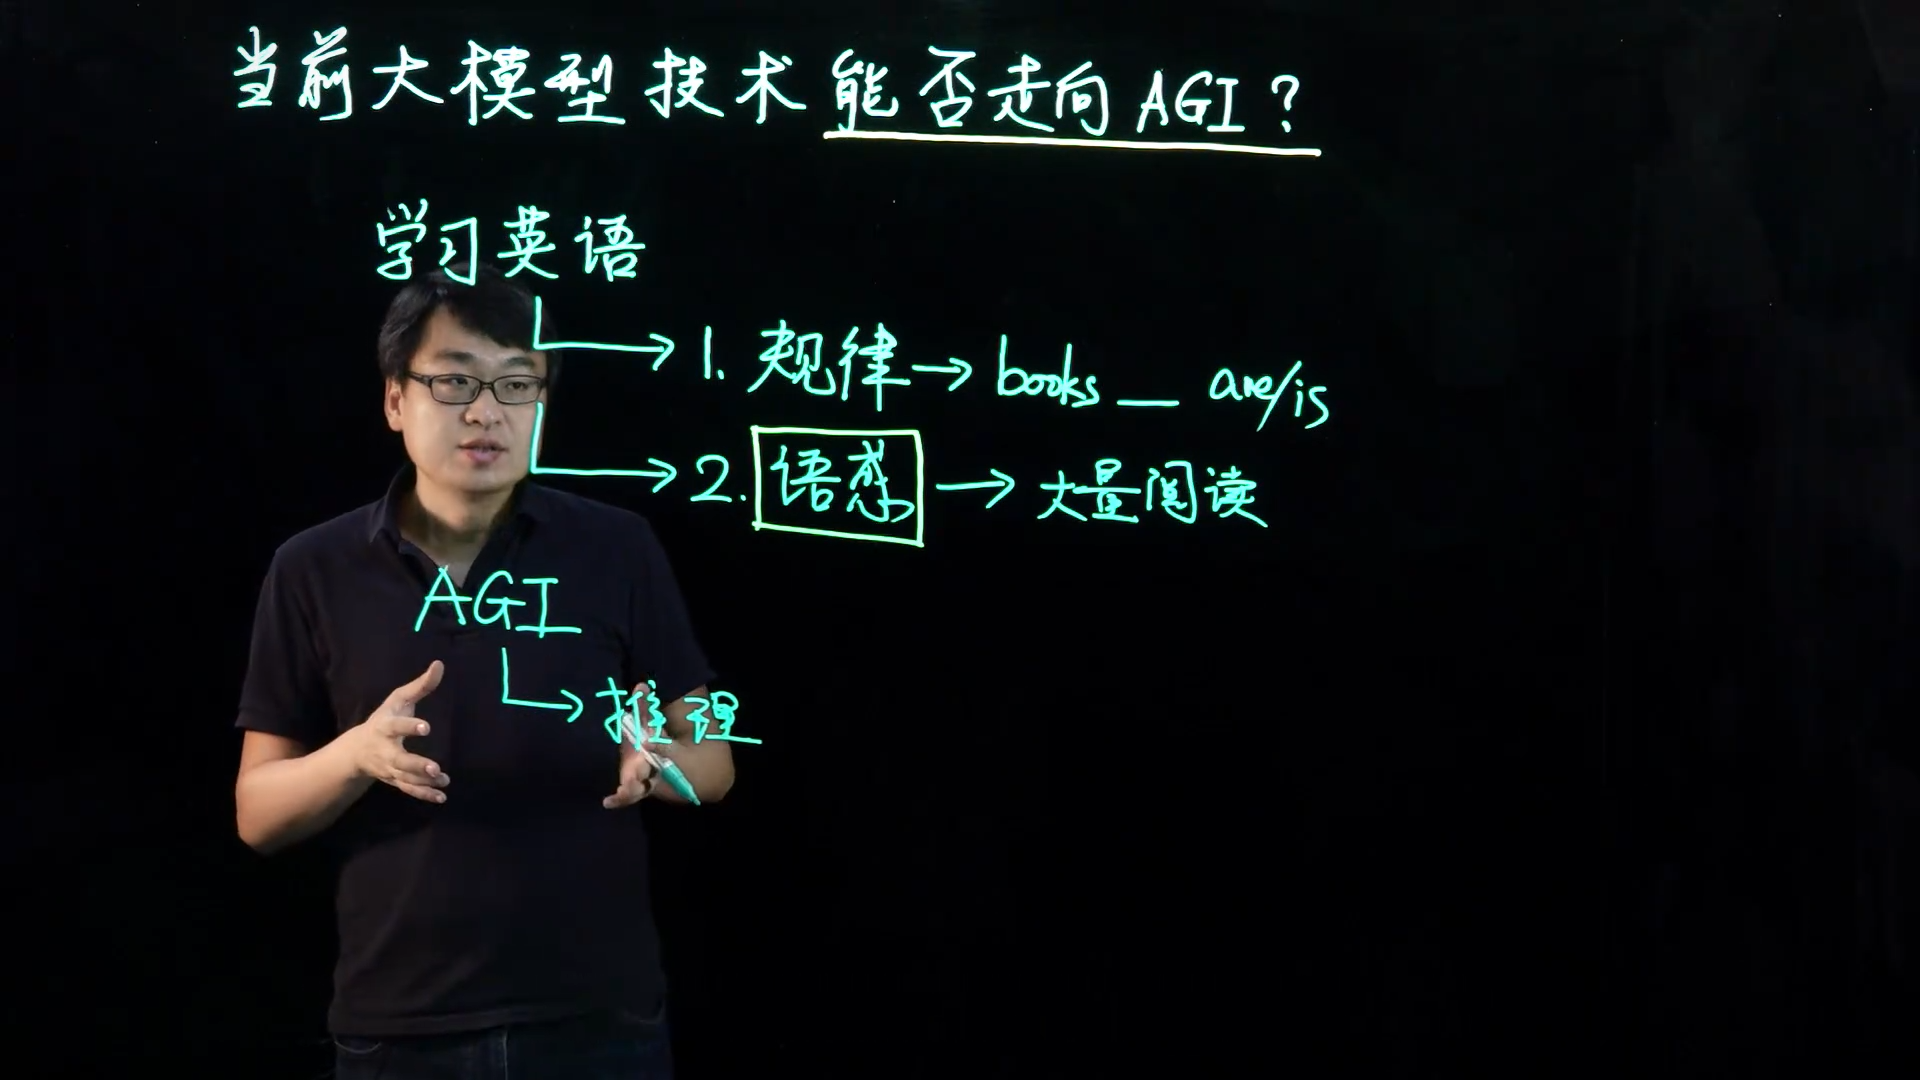 当前大模型技术能否走向AGI?
学习英语
1. 规律→books __ are/is
2. 语感→大量阅读
AGI
推理